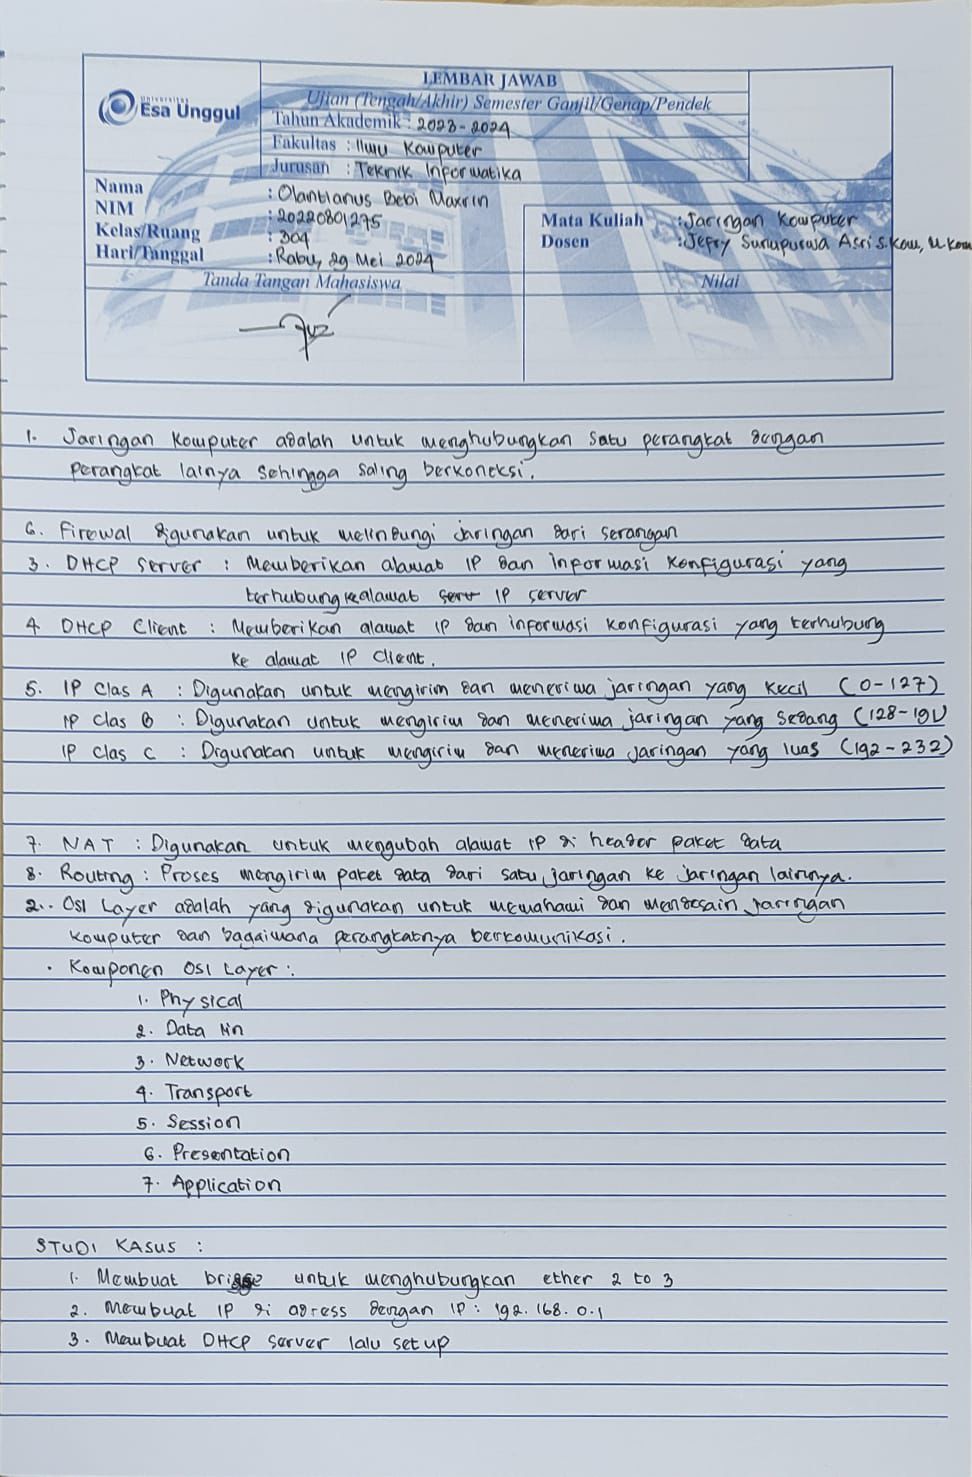 Universitas
Esa Unggul
LEMBAR JAWAB
Ujian (Tengah/Akhir) Semester Ganjil/Genap/Pendek
Tahun Akademik : 2023-2024
Fakultas : Ilmu Komputer
Jurusan : Teknik Informatika
Nama : Olantianus Bebi Maxrin
NIM : 20220801295
Kelas/Ruang : 304
Hari/Tanggal : Rabu, 29 Mei 2024
Mata Kuliah : Jaringan Komputer
Dosen : Jefry Sunupurwa Asri S.Kom, M.Kom
Tanda Tangan Mahasiswa
Nilai
1. Jaringan Komputer adalah untuk menghubungkan satu perangkat dengan
perangkat lainya sehingga saling berkoneksi.
6. Firewal digunakan untuk melindungi jaringan dari serangan
3. DHCP Server : Memberikan alamat IP dan informasi konfigurasi yang
terhubung ke alamat IP server
4. DHCP Client : Memberikan alamat IP dan informasi konfigurasi yang terhubung
ke alamat IP Client.
5. IP Clas A : Digunakan untuk mengirim dan menerima jaringan yang kecil (0-127)
IP Clas B : Digunakan untuk mengirim dan menerima jaringan yang sedang (128-191)
IP Clas C : Digunakan untuk mengirim dan menerima jaringan yang luas (192-232)
7. NAT : Digunakan untuk mengubah alamat IP di header paket data
8. Routing : Proses mengirim paket data dari satu jaringan ke jaringan lainnya.
2. OSI Layer adalah yang digunakan untuk memahami dan mendesain jaringan
komputer dan bagaimana perangkatnya berkomunikasi.
• Komponen OSI Layer :
1. Physical
2. Data lin
3. Network
4. Transport
5. Session
6. Presentation
7. Application
STUDI KASUS :
1. Membuat bridge untuk menghubungkan ether 2 to 3
2. Membuat IP di adress dengan IP : 192.168.0.1
3. Membuat DHCP server lalu set up